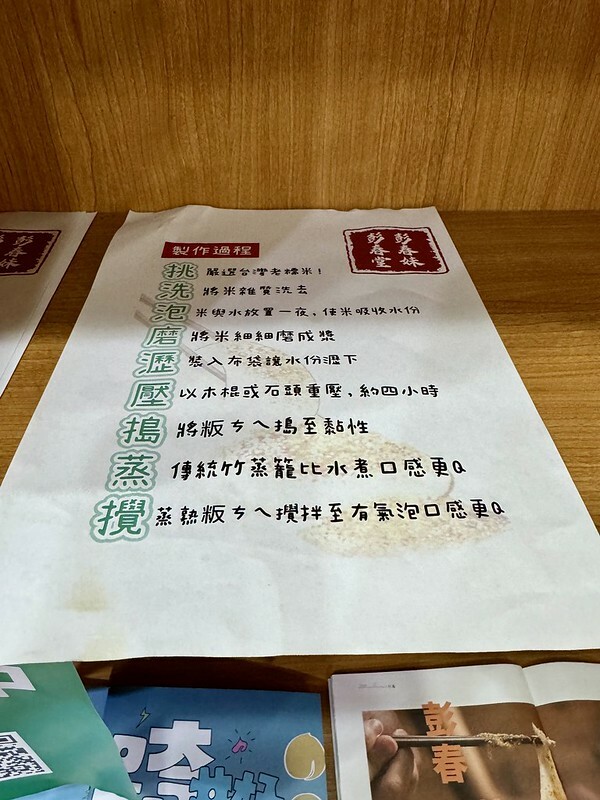 製作過程
彭春妹
彭春堂
挑 嚴選台灣老糯米!
洗 將米雜質洗去
泡 米與水放置一夜,使米吸收水份
磨 將米細細磨成漿
瀝 裝入布袋讓水份瀝下
壓 以木棍或石頭重壓,約四小時
搗 將粄ㄘㄟ搗至黏性
蒸 傳統竹蒸籠比水煮口感更Q
攪 蒸熟粄ㄘㄟ攪拌至有氣泡口感更Q
彭春妹
彭春